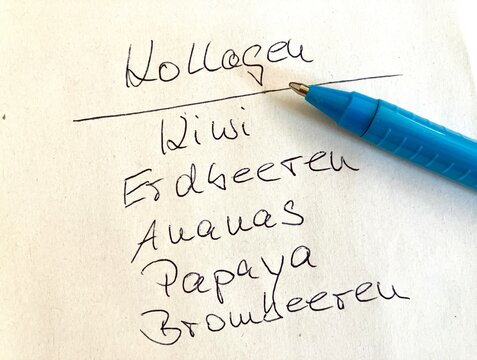 Kollagen
Kiwi
Erdbeeren
Ananas
Papaya
Brombeeren